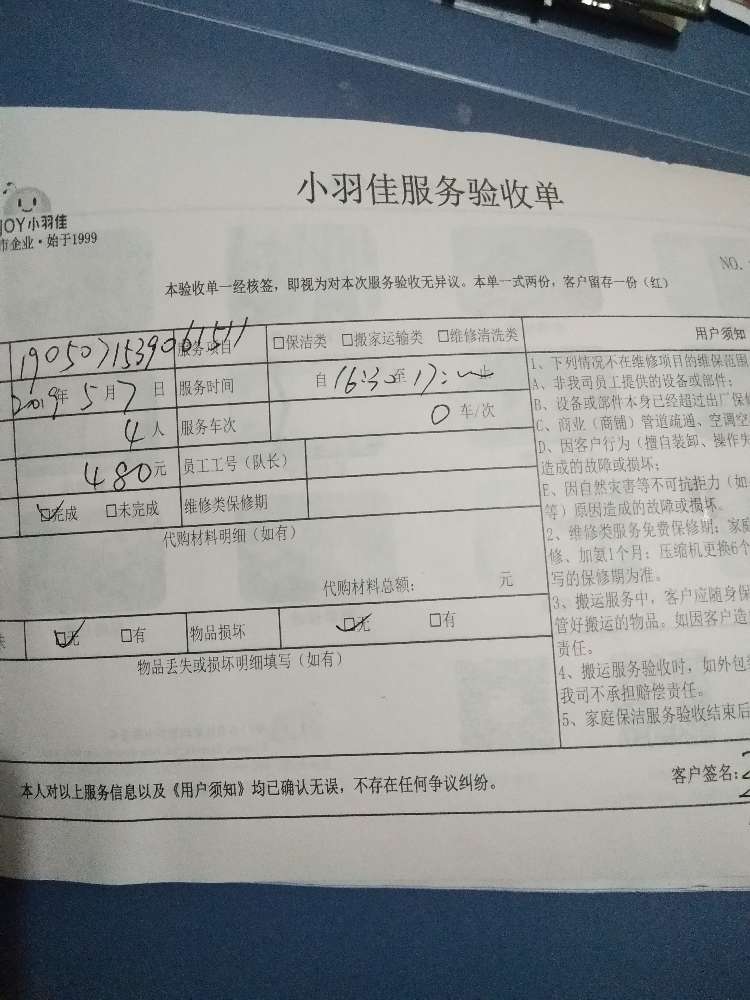 小羽佳服务验收单
JOY小羽佳
市企业·始于1999
NO.
本验收单一经核签，即视为对本次服务验收无异议。本单一式两份，客户留存一份（红）
服务项目 □保洁类 □搬家运输类 □维修清洗类
2019年5月7日 服务时间 自16:3至17:
4人 服务车次 0车/次
480元 员工工号（队长）
☑完成 □未完成 维修类保修期
代购材料明细（如有）
代购材料总额： 元
☑无 □有 物品损坏 ☑无 □有
物品丢失或损坏明细填写（如有）
用户须知
1、下列情况不在维修项目的维保范围
A、非我司员工提供的设备或部件；
B、设备或部件本身已经超过出厂保修
C、商业（商铺）管道疏通、空调空
D、因客户行为（擅自装卸、操作失
造成的故障或损坏；
E、因自然灾害等不可抗拒力（如
等）原因造成的故障或损坏。
2、维修类服务免费保修期：家庭
修、加氨1个月；压缩机更换6个
写的保修期为准。
3、搬运服务中，客户应随身保
管好搬运的物品。如因客户造
责任。
4、搬运服务验收时，如外包装
我司不承担赔偿责任。
5、家庭保洁服务验收结束后
本人对以上服务信息以及《用户须知》均已确认无误，不存在任何争议纠纷。
客户签名：